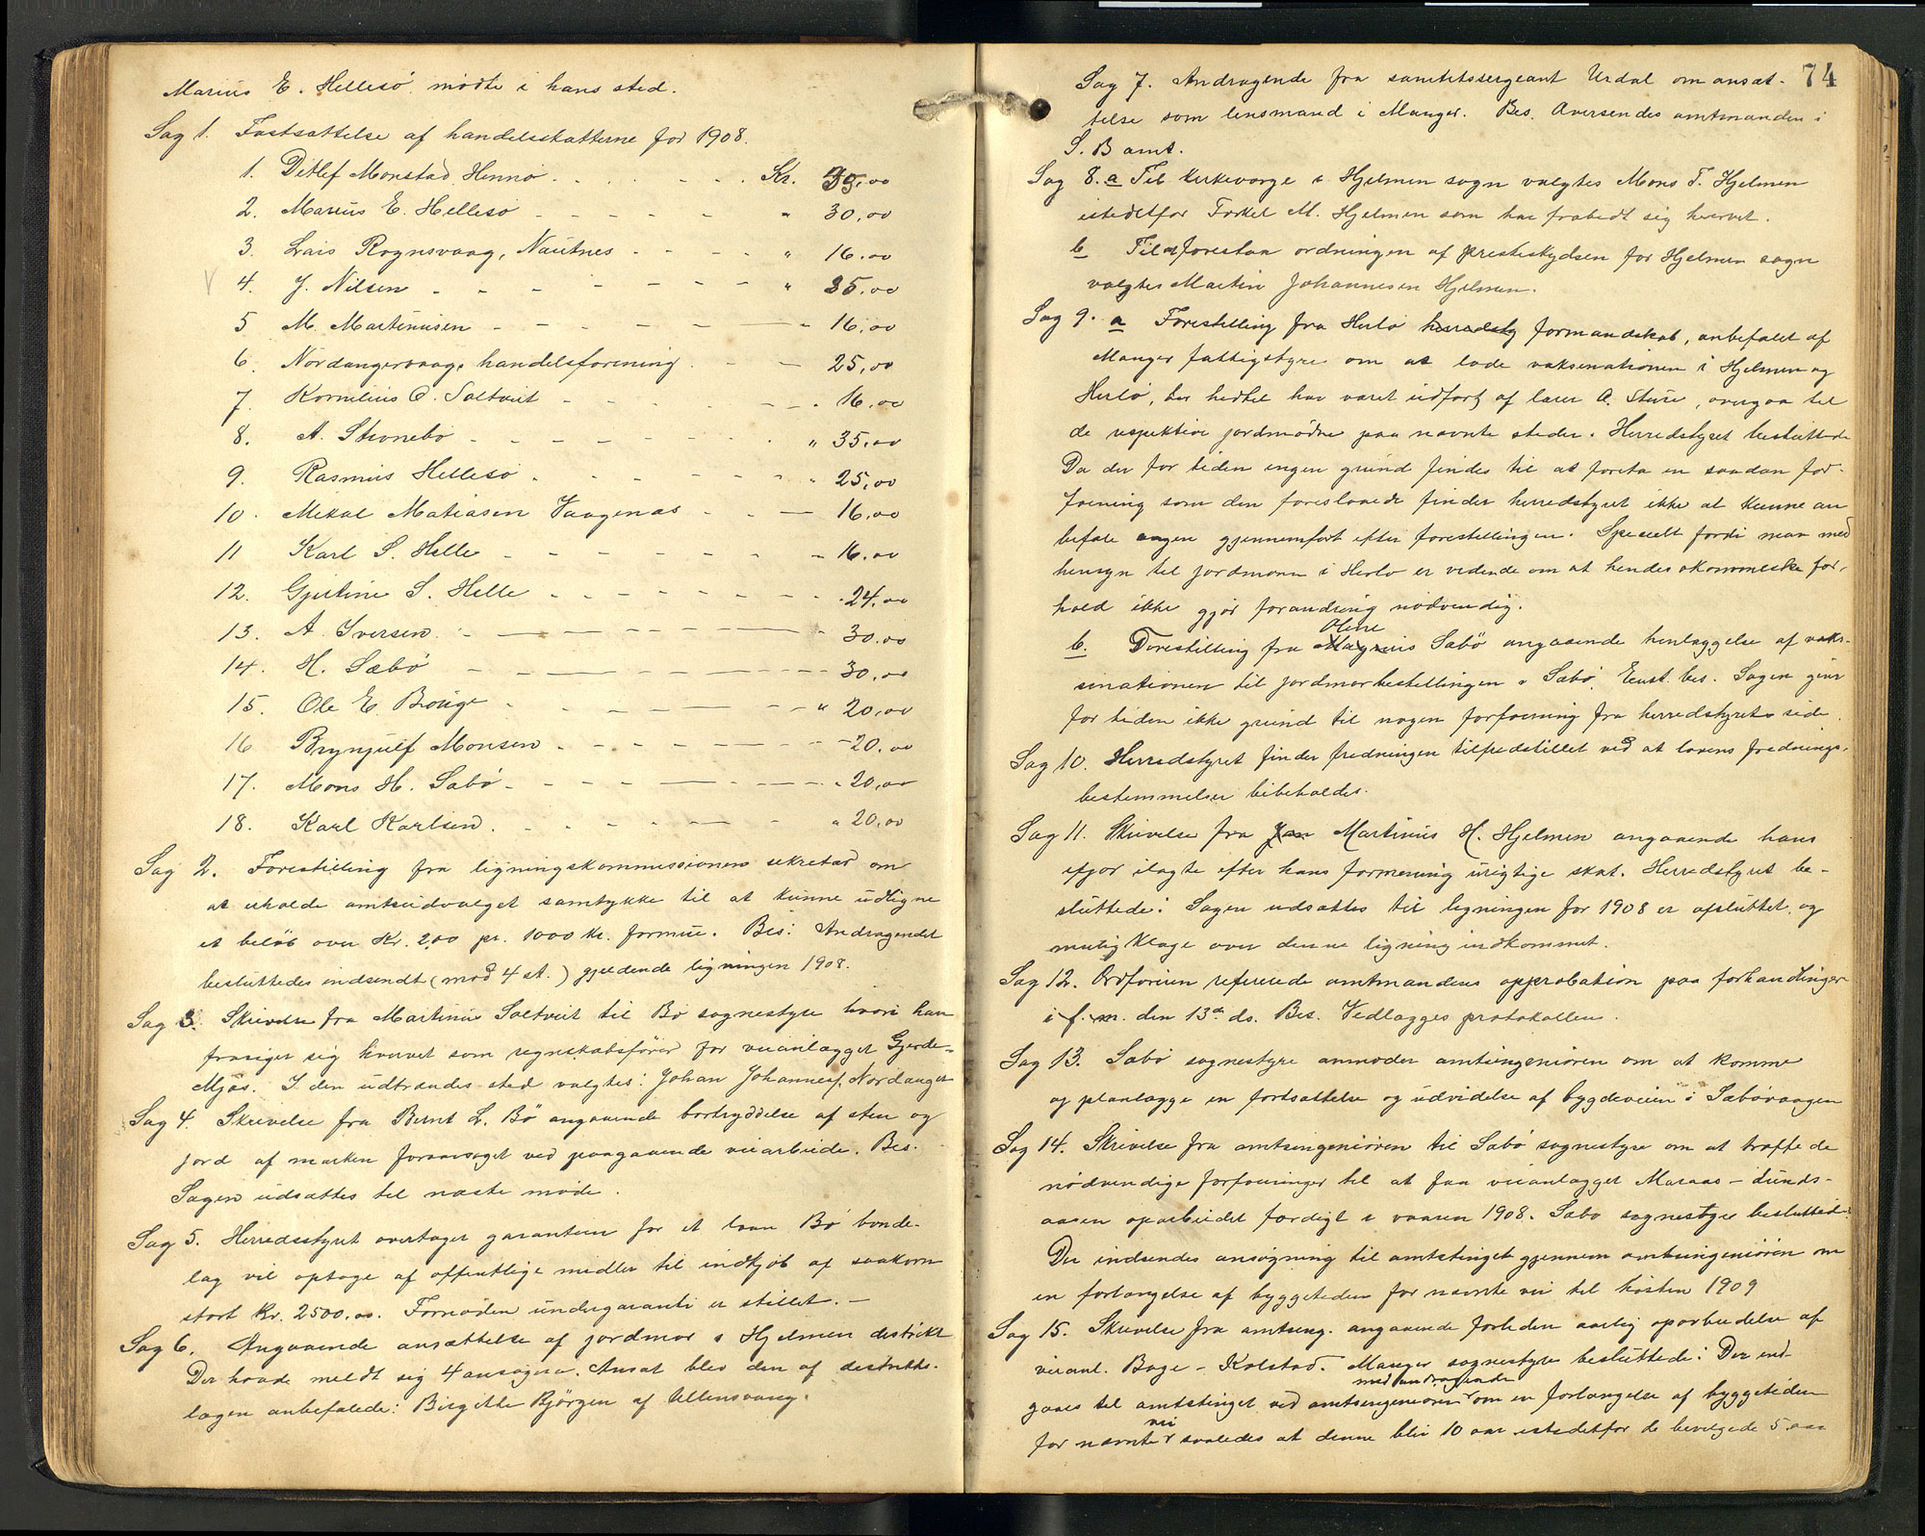 Marius E. Hellesö mödte i hans sted.
Sag 1. Fastsættelse af handelsskatterne for 1908.
1. Ditlef Monstad Hennø . . . . . . Kr. 35,00
2. Marius E. Hellesö - - - - - " 30,00
3. Lars Rognsvaag, Nautnes - - - - " 16.00
4. J. Nilsen - - - - - - - - " 35.00
5 M. Martinusen - - - - - - - 16,00
6. Nordangervaags handelsforening . - - 25,00
7. Kornelius O. Saltveit - - . . - - . 16,00
8. A. Stronebö - - - - - - . . " 35,00
9. Rasmus Hellesö . . . - - - - . 25,00
10. Mikal Matiasen Vaagenæs - - - 16,00
11 Karl S. Helle - - - - - - - - 16.00
12. Gjertine S. Helle - - - - - - - - 24,00
13. A. Iversen. - - - - - - - 30.00
14. H. Sæbö - - - - - - - 30,00
15. Ole E. Bröige - - - - - - - " 20,00
16 Brynjulf Monsen - - - - - - - 20,00
17. Mons H. Sæbö - - - - - - - - 20,00
18. Karl Karlsen. - - - - - - - " 20,00
Sag 2. Forestilling fra ligningskommissionens sekretær om
at erholde amtsudvalget samtykke til at kunne udligne
et belöb over Kr. 2,00 pr. 1000 Kr. formue. Bes: Andragendet
besluttedes indsendt (mod 4 st.) gjeldende ligningen 1908.
Sag 3. Skrivelse fra Martinus Saltveit til Bö sognestyre hvori han
frasiger sig hvervet som regnskabsförer for veianlægget Gjerde-
Mjøs. I den udtrædendes sted valgtes: Johan Johannesen Nordanger
Sag 4. Skrivelse fra Bernt L. Bö angaaende bortryddelse af sten og
jord af marken foraarsaget ved paagaaende veiarbeide. Bes.
Sagen udsættes til næste möde.
Sag 5. Herredsstyret overtager garantien for et laan Bö bonde-
lag vil optage af offentlige midler til indkjöb af saakorn
stort Kr. 2500,00. Fornøden undergaranti er stillet. —
Sag 6. Angaaende ansættelse af jordmor i Hjelmen distrikt
Der havde meldt sig 4 ansøgere. Ansat blev den af distrikts-
lægen anbefalede: Birgitte Bjørgen af Ullensvang.
74
Sag 7. Andragende fra sanitetssergeant Urdal om ansæt-
telse som lensmand i Manger. Bes. Oversendes amtmanden i
S. B amt.
Sag 8. a Til kirkeværge i Hjelmen sogn valgtes Mons T. Hjelmen
istedetfor Torkel M. Hjelmen som har frabedt sig hvervet.
b Til at forestaa ordningen af presteskydsen for Hjelmen sogn
valgtes Martin Johannesen Hjelmen.
Sag 9. a Forestilling fra Herlö herredsty formandskab, anbefalet af
Manger fattigstyre om at lade vaksinationen i Hjelmen og
Herlö, der hidtil har været udført af lærer A. Sture, overgaa til
de respektive jordmødre paa nævnte steder. Herredstyret besluttede
Da der for tiden ingen grund findes til at foreta en saadan for-
føining som den foreslaaede finder herredstyret ikke at kunne an
befale sagen gjennemført efter forestillingen. Specielt fordi man med
hensyn til jordmoren i Herlø er vidende om at hendes økonomiske for-
hold ikke gjør forandring nødvendig.
b. Forestilling fra Magnus Oline Sæbö angaaende henlæggelse af vak-
sinationen til jordmorbestillingen i Sæbö. Enst. bes. Sagen giver
for tiden ikke grund til nogen forføining fra herredstyrets side.
Sag 10. Herredstyret finder fredningen tilfredstillet ved at lovens frednings-
bestemmelser bibeholdes.
Sag 11. Skrivelse fra Jan Martinus H. Hjelmen angaaende hans
ifjor ilagte efter hans formening urigtige skat. Herredstyret be-
sluttede: Sagen udsættes til ligningen for 1908 er afsluttet og
mulig klage over denne ligning indkommet.
Sag 12. Ordføreren refererede amtmandens approbation paa forhandlinger
i f. m. den 13de ds. Bes. Vedlægges protokollen.
Sag 13. Sæbö sognestyre anmoder amtsingeniøren om at komme
og planlægge en fortsættelse og udvidelse af bygdeveien i Sæbövaagen
Sag 14. Skrivelse fra amtsingeniøren til Sæbö sognestyre om at træffe de
nødvendige forføininger til at faa veianlægget Maraas - Lunds-
aasen oparbeidet færdigt i vaaren 1908. Sæbø sognestyre besluttede:
Der indsendes ansøgning til amtstinget gjennem amtsingeniøren om
en forlængelse af byggetiden for nævnte vei til høsten 1909
Sag 15. Skrivelse fra amtsing. angaaende forleden aarlig oparbeidelse af
veianl. Bøge - Kolstad. Manger sognestyre besluttede: Der ind-
gaaes til amtstinget ved amtsingeniøren med andragende om en forlængelse af byggetiden
for nævnte vei saaledes at denne blir 10 aar istedetfor de bevilgede 5 aar